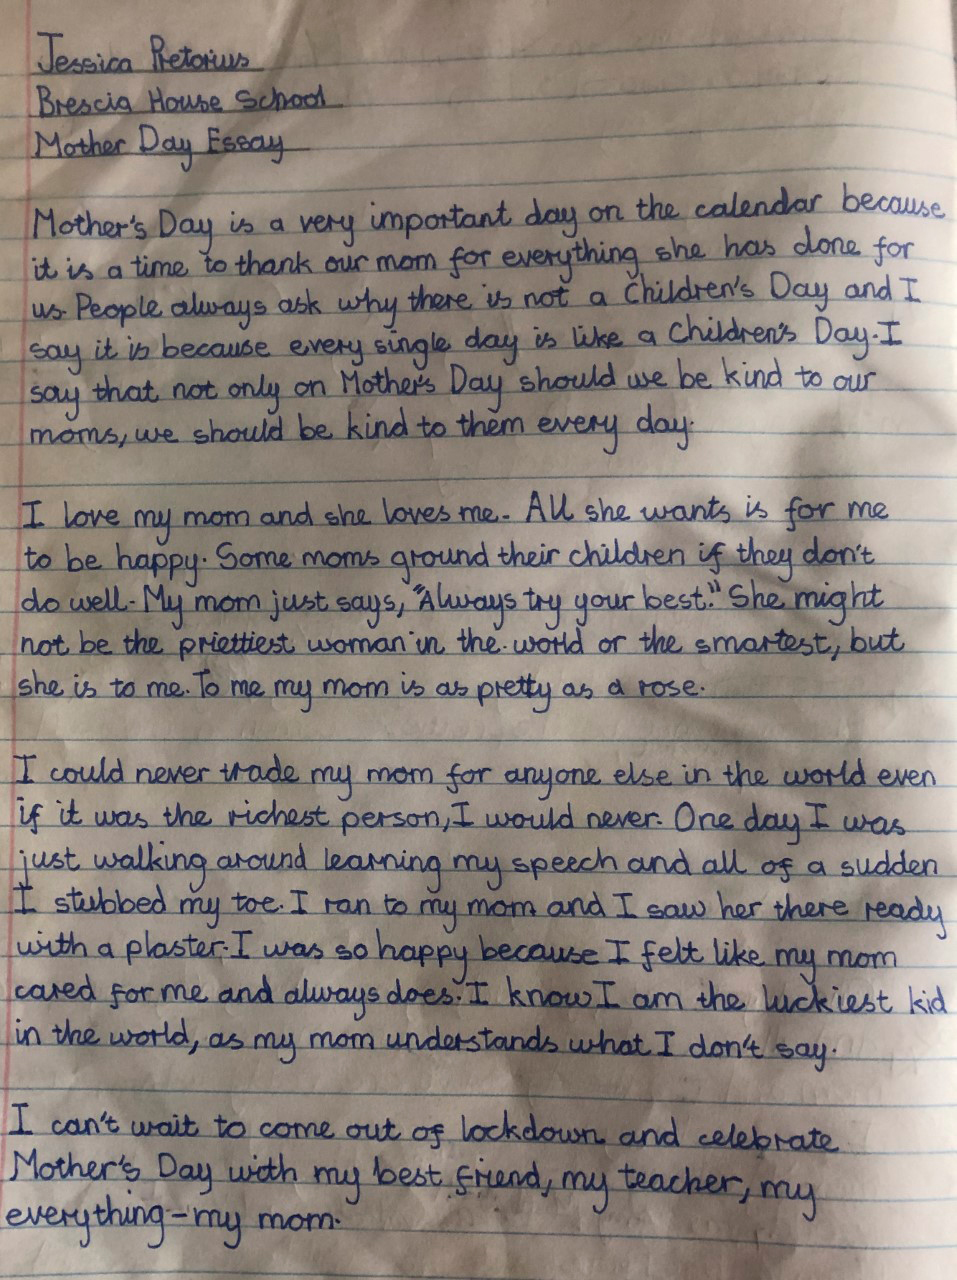 Jessica Pretorius
Brescia House School
Mother Day Essay
Mother's Day is a very important day on the calendar because
it is a time to thank our mom for everything she has done for
us. People always ask why there is not a Children's Day and I
say it is because every single day is like a Children's Day. I
say that not only on Mother's Day should we be kind to our
moms, we should be kind to them every day.
I love my mom and she loves me. All she wants is for me
to be happy. Some moms ground their children if they don't
do well. My mom just says, "Always try your best." She might
not be the priettiest woman in the world or the smartest, but
she is to me. To me my mom is as pretty as a rose.
I could never trade my mom for anyone else in the world even
if it was the richest person, I would never. One day I was
just walking around learning my speech and all of a sudden
I stubbed my toe. I ran to my mom and I saw her there ready
with a plaster. I was so happy because I felt like my mom
cared for me and always does. I know I am the luckiest kid
in the world, as my mom understands what I don't say.
I can't wait to come out of lockdown and celebrate
Mother's Day with my best friend, my teacher, my
everything - my mom.